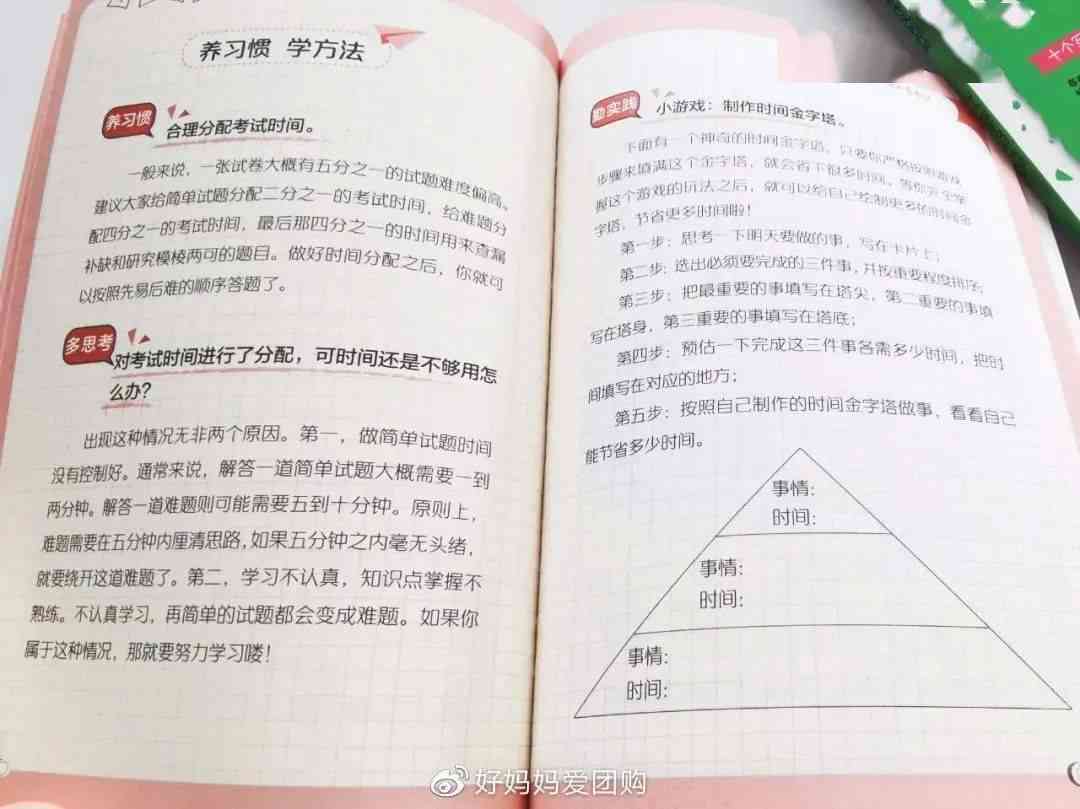 养习惯 学方法
养习惯
合理分配考试时间。
一般来说，一张试卷大概有五分之一的试题难度偏高。
建议大家给简单试题分配二分之一的考试时间，给难题分
配四分之一的考试时间，最后那四分之一的时间用来查漏
补缺和研究模棱两可的题目。做好时间分配之后，你就可
以按照先易后难的顺序答题了。
多思考
对考试时间进行了分配，可时间还是不够用怎
么办？
出现这种情况无非两个原因。第一，做简单试题时间
没有控制好。通常来说，解答一道简单试题大概需要一到
两分钟。解答一道难题则可能需要五到十分钟。原则上，
难题需要在五分钟内厘清思路，如果五分钟之内毫无头绪，
就要绕开这道难题了。第二，学习不认真，知识点掌握不
熟练。不认真学习，再简单的试题都会变成难题。如果你
属于这种情况，那就要努力学习喽！
勤实践
小游戏：制作时间金字塔。
下面有一个神奇的时间金字塔，只要你严格按照游戏
步骤来填满这个金字塔，就会省下很多时间。等你完全掌
握这个游戏的玩法之后，就可以给自己绘制更多的时间金
字塔，节省更多时间啦！
第一步：思考一下明天要做的事，写在卡片上；
第二步：选出必须要完成的三件事，并按重要程度排序；
第三步：把最重要的事填写在塔尖，第二重要的事填
写在塔身，第三重要的事填写在塔底；
第四步：预估一下完成这三件事各需多少时间，把时
间填写在对应的地方；
第五步：按照自己制作的时间金字塔做事，看看自己
能节省多少时间。
事情：
时间：
事情：
时间：
事情：
时间：
十个写
好妈妈爱团购